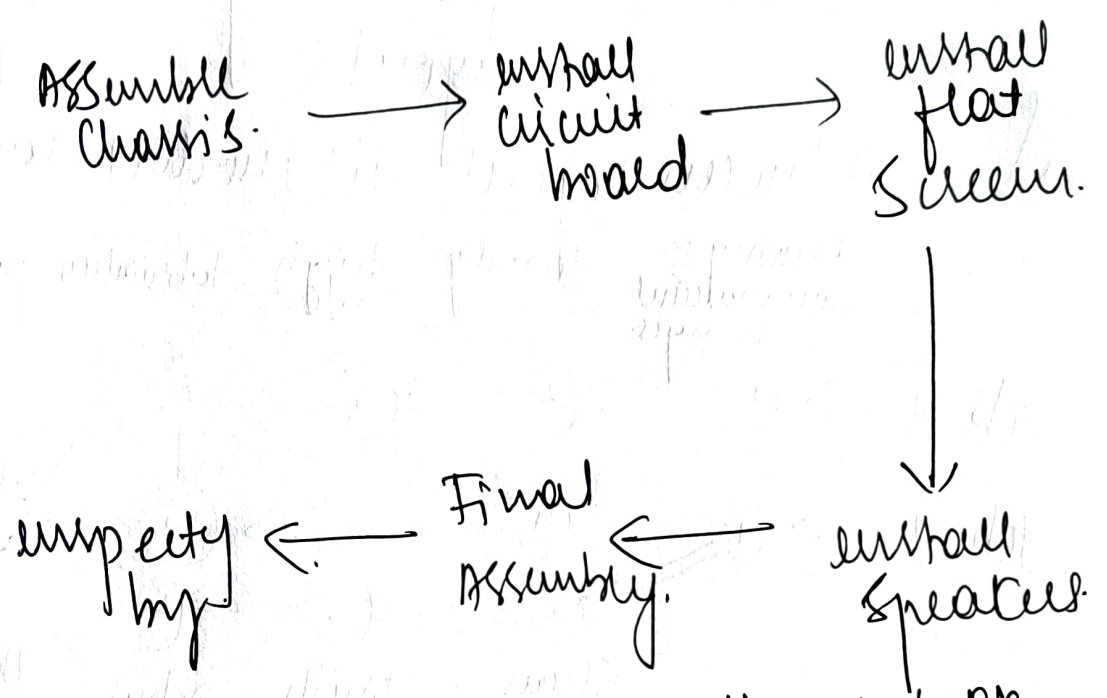 Assemble
Chassis.
install
circuit
board
install
flat
Screen.
install
speakers.
Final
Assembly.
inspecty
by